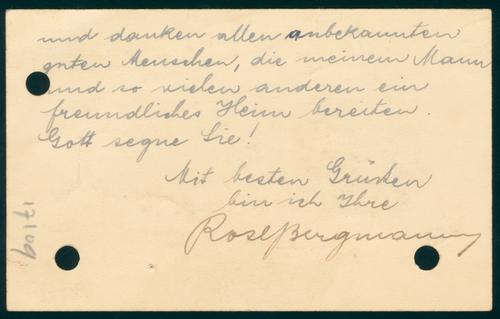 und danken allen unbekannten
guten Menschen, die meinem Mann
und so vielen anderen ein
freundliches Heim bereiten.
Gott segne Sie!
Mit besten Grüssen
bin ich Ihre
Rosl Bergmann
17109